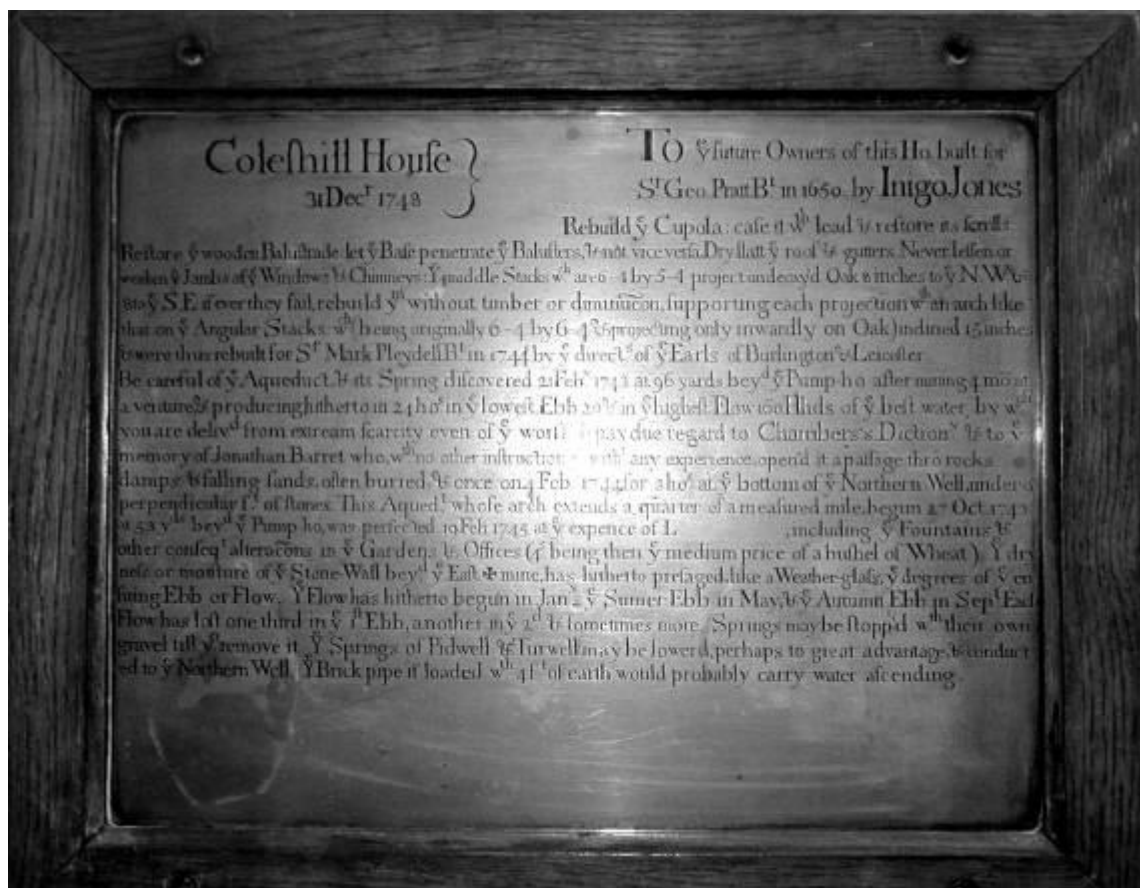 Coleſhill Houſe
31 Decʳ 1748
To yᵉ future Owners of this Ho. built for
Sʳ Geo. Pratt Bᵗ in 1650. by Inigo Jones
Rebuild yᵉ Cupola: caſe it wᵗʰ lead & reſtore its ſcrolls:
Reſtore yᵉ wooden Baluſtrade. let yᵉ Baſe penetrate yᵉ Baluſters, & not vice verſa. Dry ſlatt yᵉ roof & gutters. Never leſſen or
weaken yᵉ Jambs of yᵉ Windows & Chimneys: Yᵉ middle Stacks wᶜʰ are 6-4 by 5-4 project undecay'd Oak 8 inches to yᵉ N.W. &
to yᵉ S.E. if ever they fail, rebuild yᵐ without timber or diminuc̄on, ſupporting each projection wᵗʰ an arch like
that on yᵉ Angular Stacks wᶜʰ being originally 6-4 by 6-4 & projecting only inwardly on Oak) inclined 15 inches
& were thus rebuilt for Sʳ Mark Pleydell Bᵗ in 1744 by yᵉ directˢ of yᵉ Earls of Burlington & Leiceſter
Be careful of yᵉ Aqueduct, & its Spring diſcovered 21 Febʸ 1743 at 96 yards beyᵈ yᵉ Pump ho after mining 4 mo at
a venture, & producing hitherto in 24 hoˢ in yᵉ loweſt Ebb 20 & in yᵉ higheſt Flow 100 Hhds of yᵉ beſt water, by wᶜʰ
you are delivᵈ from extream ſcarcity even of yᵉ worſt pay due regard to Chambers's Dictionʸ & to yᵉ
memory of Jonathan Barret who, wᵗʰ no other inſtruction withᵗ any experience, open'd it a paſſage thro rocks
damps & falling ſands, often burred, & once on 4 Feb 1744 for 3 hoˢ at yᵉ bottom of yᵉ Northern Well, under
perpendicular fᵗ of ſtones. This Aquedᵗ whoſe arch extends a quarter of a meaſured mile, begun 27 Oct. 1742
at 52 yᵈˢ beyᵈ yᵉ Pump ho, was perfected 19 Feb 1745 at yᵉ expence of L , including yᵉ Fountains &
other conſeqᵗ alterac̄ons in yᵉ Gardens & Offices (4ˢ being then yᵉ medium price of a buſhel of Wheat). Yᵉ dry
neſs or moiſture of yᵉ Stone-Wall beyᵈ yᵉ Eaſt ✠ mine, has hitherto preſaged, like a Weather-glaſs, yᵉ degrees of yᵉ en
ſuing Ebb or Flow. Yᵉ Flow has hitherto begun in Janʸ yᵉ Sum̄er Ebb in May, & yᵉ Autumn Ebb in Sepᵗ Each
Flow has loſt one third in yᵉ 1ſᵗ Ebb, another in yᵉ 2ᵈ & ſometimes more. Springs may be ſtopp'd wᵗʰ their own
gravel till yᵘ remove it. Yᵉ Springs of Pidwell & Turwell may be lower'd, perhaps to great advantage, & conduct
ed to yᵉ Northern Well. Yᵉ Brick pipe if loaded wᵗʰ 4fᵗ of earth would probably carry water aſcending.